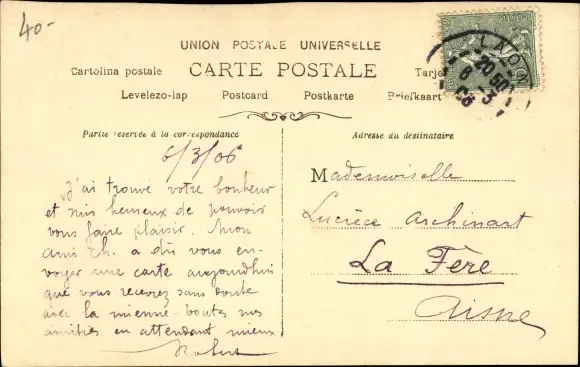 40-
UNION POSTALE UNIVERSELLE
CARTE POSTALE
Cartolina postale
Tarje
Levelezo-lap Postcard Postkarte Briefkaart
LAON
20 50
6 - 3
06
Partie réservée à la correspondance
Adresse du destinataire
6/3/06
J'ai trouvé votre bonheur
et suis heureux de pouvoir
vous faire plaisir. Mon
ami Ch. a dû vous en-
voyer une carte aujourd'hui
que vous recevrez sans doute
avec la mienne. Toutes mes
amitiés en attendant mieux
Robert
Mademoiselle
Lucrèce Archinart
La Fère
Aisne